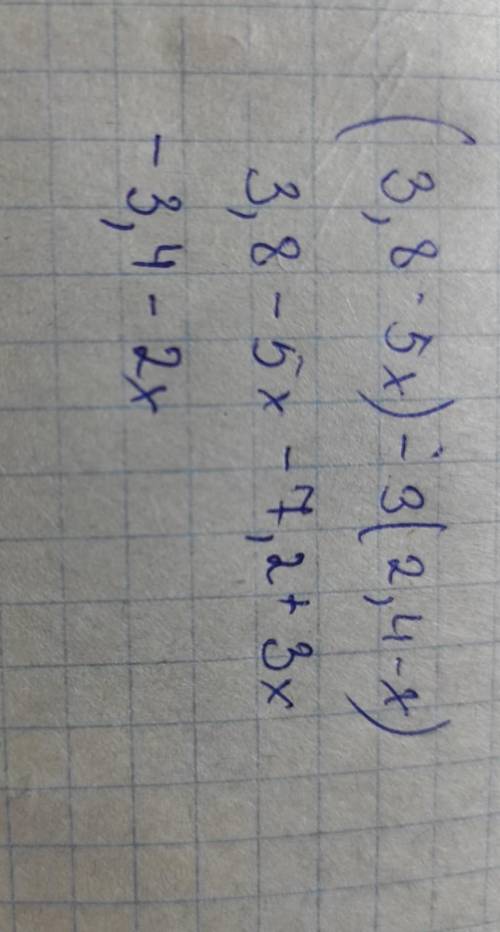 (3,8 - 5x) - 3(2,4 - x)
3,8 - 5x - 7,2 + 3x
- 3,4 - 2x